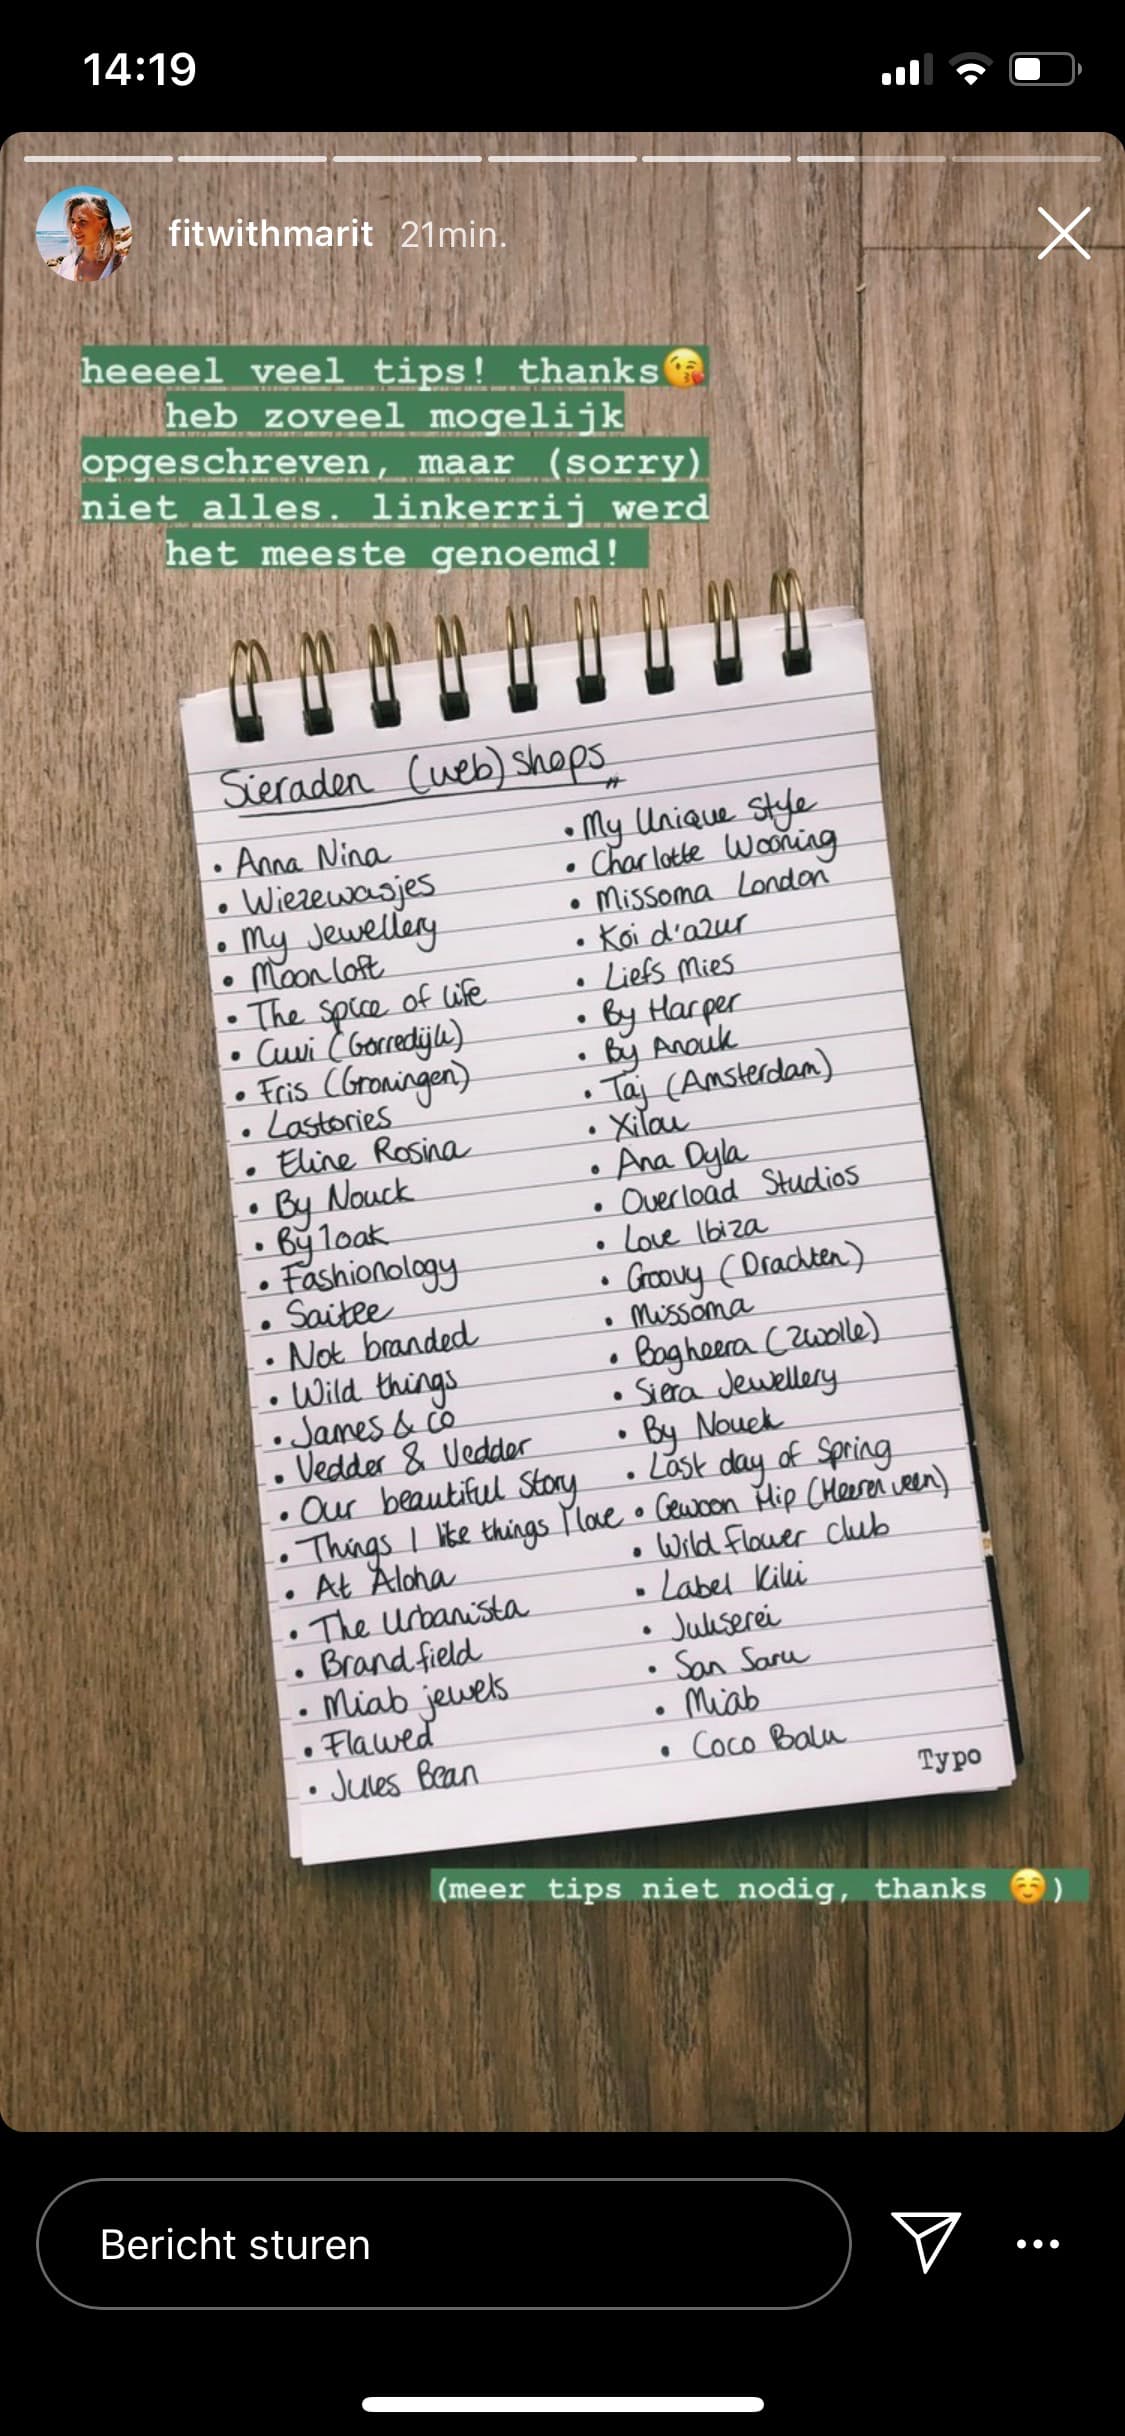 14:19
fitwithmarit 21min.
heeeel veel tips! thanks😘
heb zoveel mogelijk
opgeschreven, maar (sorry)
niet alles. linkerrij werd
het meeste genoemd!
Sieraden (web)shops
• Anna Nina
• Wiezewasjes
• My Jewellery
• Moonloft
• The spice of life
• Cuvi (Gorredijk)
• Fris (Groningen)
• Lastories
• Eline Rosina
• By Nouck
• By 1oak
• Fashionology
• Saitee
• Not branded
• Wild things
• James & co
• Vedder & Vedder
• Our beautiful Story
• Things I like things I love
• At Aloha
• The Urbanista
• Brandfield
• Miab jewels
• Flawed
• Jules Bean
• My Unique Style
• Charlotte Wooning
• Missoma London
• Koi d'azur
• Liefs Mies
• By Harper
• By Anouk
• Taj (Amsterdam)
• Xilou
• Ana Dyla
• Overload Studios
• Love Ibiza
• Groovy (Drachten)
• Missoma
• Bagheera (Zwolle)
• Siera Jewellery
• By Nouck
• Last day of Spring
• Gewoon Hip (Heerenveen)
• Wildflower club
• Label Kiki
• Jukserei
• San Saru
• Miab
• Coco Balu
Typo
(meer tips niet nodig, thanks ☺️)
Bericht sturen